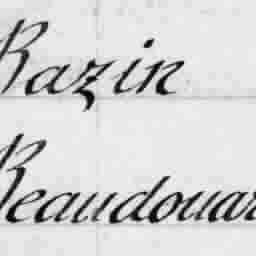 Razin
Beaudouar